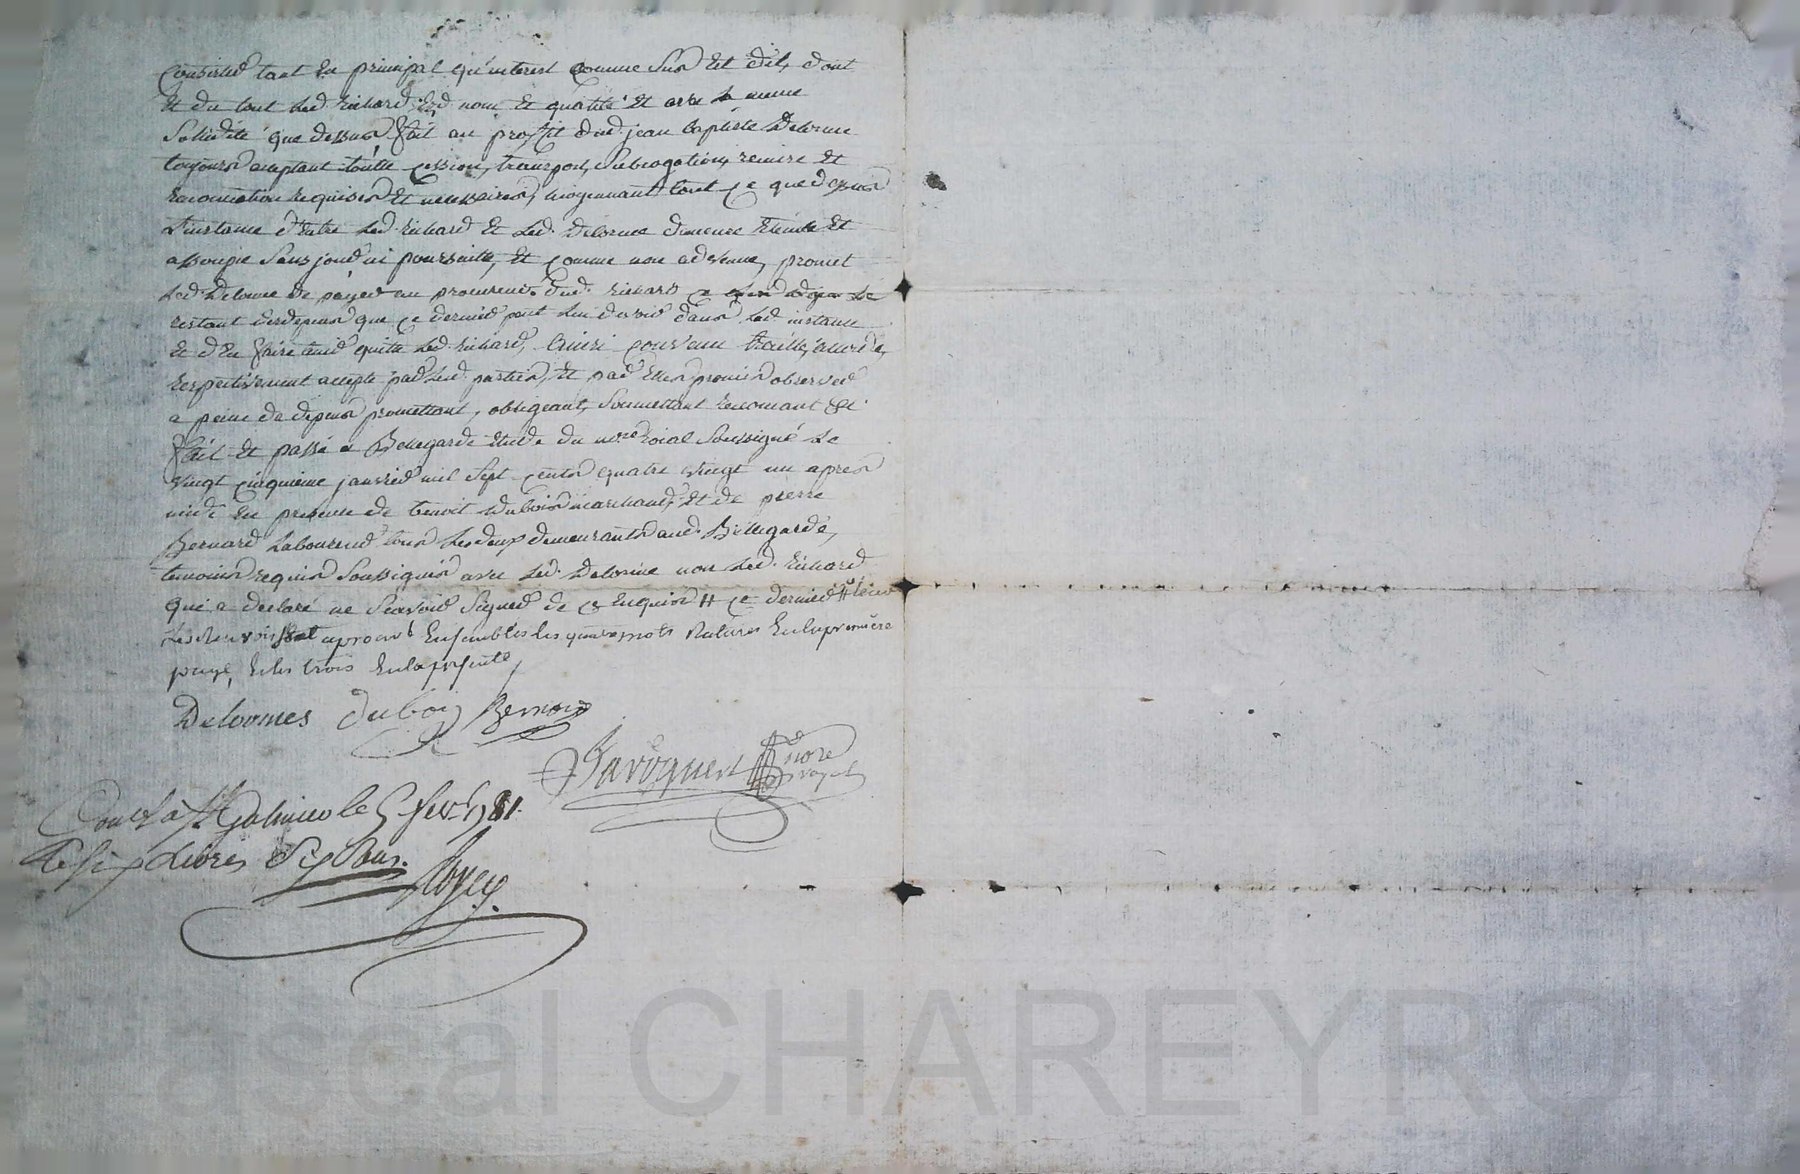 consister tant en principal qu'interest comme sur est dit, dont
et du tout led. Richard esd. nom et qualité et avec la meme
solidité que dessus fait au proffit dud. jean baptiste Delorme
toujours aceptant toutte cession, transport, subrogation, remise et
renonciation requises et necessaires, moyennant tout ce que dessus
l'instance d'entre led. Richard et led. Delorme demeure eteinte et
assoupie sans jour ni poursuitte, et comme non advenue, promet
led. Delorme de payer au procureur dud. Richard le
restant des depens que ce dernier peut lui devoir dans lad. instance
et d'en faire tenir quitte led. Richard, Ainsi convenu traitté, accordé,
respectivement accepté par lesd. parties, et par elles promis observer
a peine de depens promettant, obligeant, soumettant renonçant &c.
fait et passé a Bellegarde etude du nore. roial soussigné le
vingt cinquieme janvier mil sept cents quatre vingt un apres
midi en presence de benoit Dubois marchand, et de pierre
Bernard laboureur tous les deux demeurants aud. Bellegarde,
temoins requis soussignés avec led. Delorme non led. Richard
qui a declaré ne scavoir signer de ce enquis # ce dernier #
aprouvé ensembles les mots Raturés en la premiere
page, et les trois en la presente,
Delormes dubois Bernard
Javogues nore royal
Controlé a St Galmier le 5 fevr. 1781.
Six Livres Six Sous.